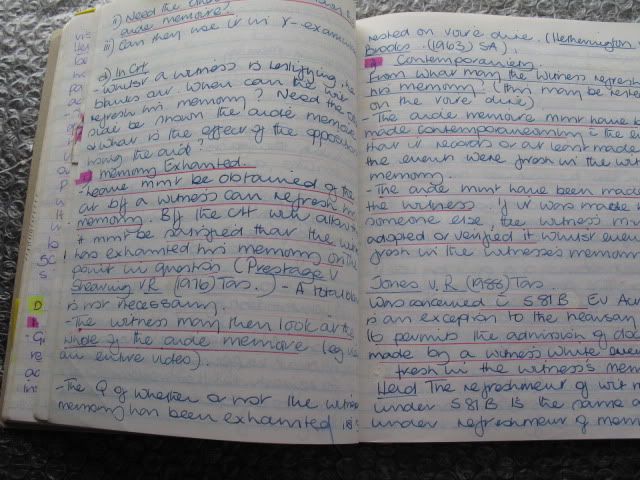 ii) Need the
aide memoire?
iii) Can they use it in x-examin
a) In Crt
- Whilst a witness is testifying, he
blanks out. When can the wit
refresh his memory? Need the
side be shown the aide memoire
& what is the effect of the opposition
using the aid?
Memory Exhausted.
- Leave must be obtained of the
crt by a witness can refresh his
memory. By the crt will allow
it must be satisfied that the wit
has exhausted his memory on the
point in question (Prestage v
Shearing v R (1976) Tas.) - A total
is not necessary.
- The witness may then look at the
whole of the aide memoire (eg
an entire video).
- The Q of whether or not the witness
memory has been exhausted is
tested on voire dire. (Hetherington
Brooks (1963) SA).
Contemporaneity.
From what may the witness refresh
his memory? (this may be tested
on the voire dire)
- The aide memoire must have b
made contemporaneously ie the
that it records or at least made
the event were fresh in the wit
memory.
- The aide must have been made
the witness. If it was made
someone else, the witness m
adopted or verified it whilst even
fresh in the witness's memory
Jones v. R (1988) Tas
Was concerned c S 81 B Ev Act
is an exception to the hearsay
It permits the admission of doc
made by a witness while eve
fresh in the witness's mem
Held The refreshment of wit
under S 81 B is the same a
under refreshment of mem
D